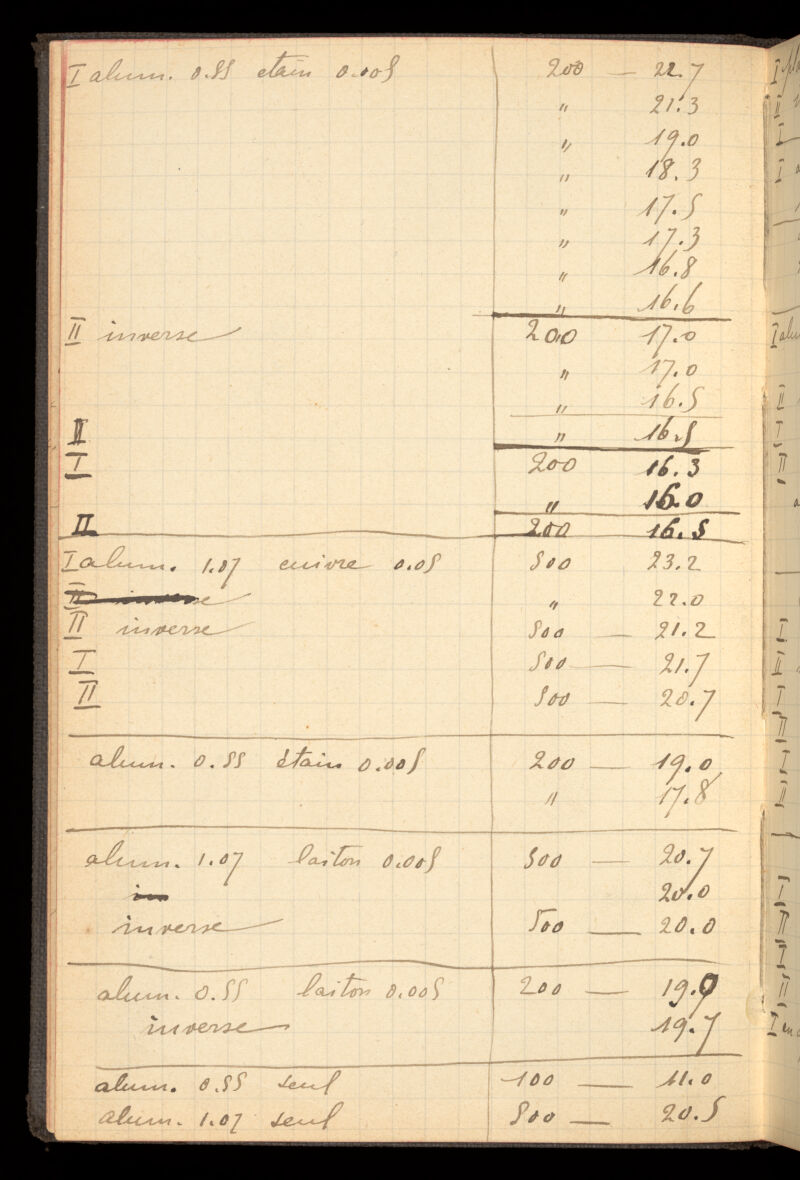 I alum. 0.55 etain 0.005 200 — 22.7
" 21.3
" 19.0
" 18.3
" 17.5
" 17.3
" 16.8
" 16.6
II inverse 200 17.0
" 17.0
" 16.5
II " 16.5
I 200 16.3
" 16.0
II 200 16.5
I alum. 1.07 cuivre 0.05 500 23.2
II inverse " 22.0
II inverse 500 — 21.2
I 500 — 21.7
II 500 — 20.7
alum. 0.55 étain 0.005 200 — 19.0
" 17.8
alum. 1.07 laiton 0.005 500 — 20.7
in 20.0
inverse 500 — 20.0
alum. 0.55 laiton 0.005 200 — 19.0
inverse 19.7
alum. 0.55 seul 100 — 11.0
alum. 1.07 seul 500 — 20.5